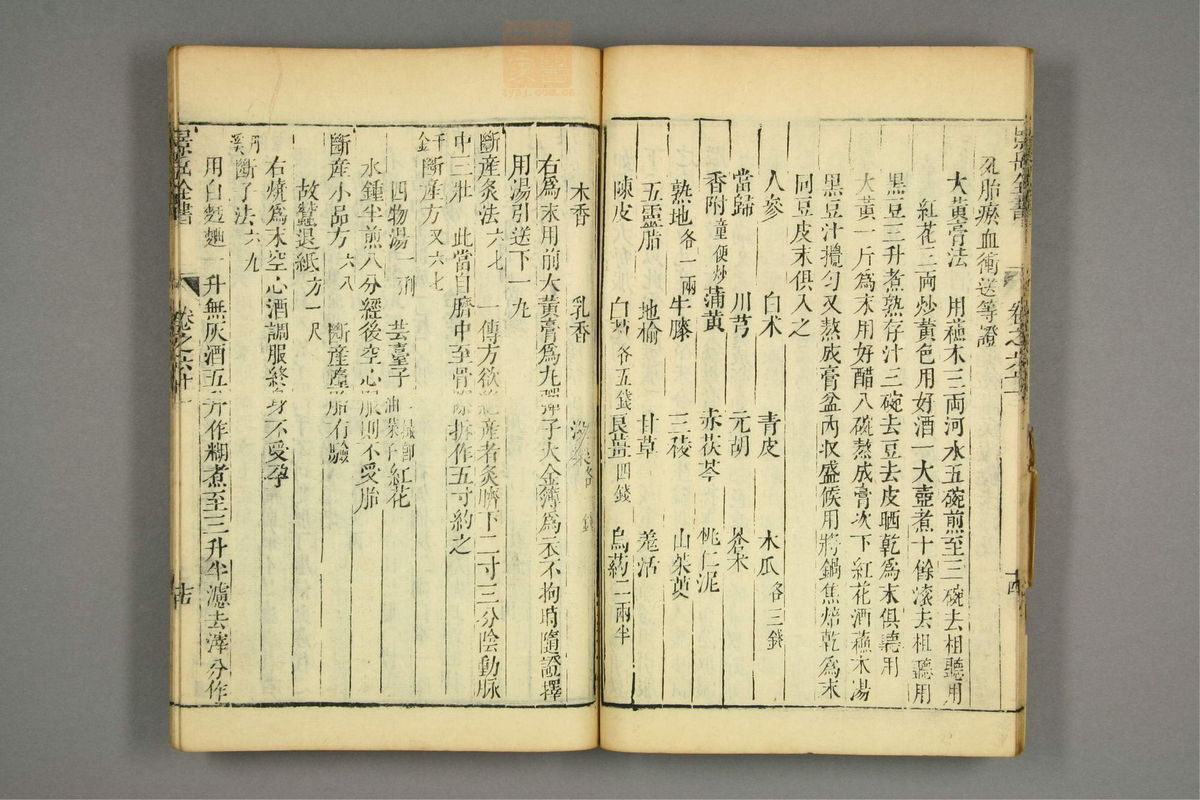 死胎瘀血衝逆等證
大黃膏法 用蘇木三兩河水五碗煎至三碗去柤聽用
紅花三兩炒黃色用好酒一大壺煮十餘滚去柤聽用
黑豆三升煮熟存汁三碗去豆去皮晒乾爲末俱聽用
大黃一斤爲末用好醋八碗熬成膏次下紅花酒蘇木湯
黑豆汁攪勻又熬成膏盆內收盛候用將鍋焦焙乾爲末
同豆皮末俱入之
人參 白术 青皮 木瓜各三錢
當歸 川芎 元胡 蒼术
香附童便炒 蒲黃 赤茯苓 桃仁泥
熟地各一兩 牛膝 三稜 山茱萸
五靈脂 地榆 甘草 羗活
陳皮 白芍各五錢 良薑四錢 烏葯二兩半
木香 乳香
右爲末用前大黃膏爲丸彈子大金簿爲衣不拘時隨證擇
用湯引送下一丸
斷産灸法六七 一傳方欲絶産者灸臍下二寸三分陰動脉
中三壯 此當自臍中至骨際折作五寸約之
千金斷産方又六七
四物湯一劑 芸薹子 油菜子 紅花
水鍾半煎八分經後空心服則不受胎
斷産小品方六八 斷産産胎有驗
故蠶退紙方一尺
右燒爲末空心酒調服終身不受孕
丹溪斷子法六九
用白麪麯一升無灰酒五升作糊煮至三升半濾去滓分作
景岳全書 卷之六十一